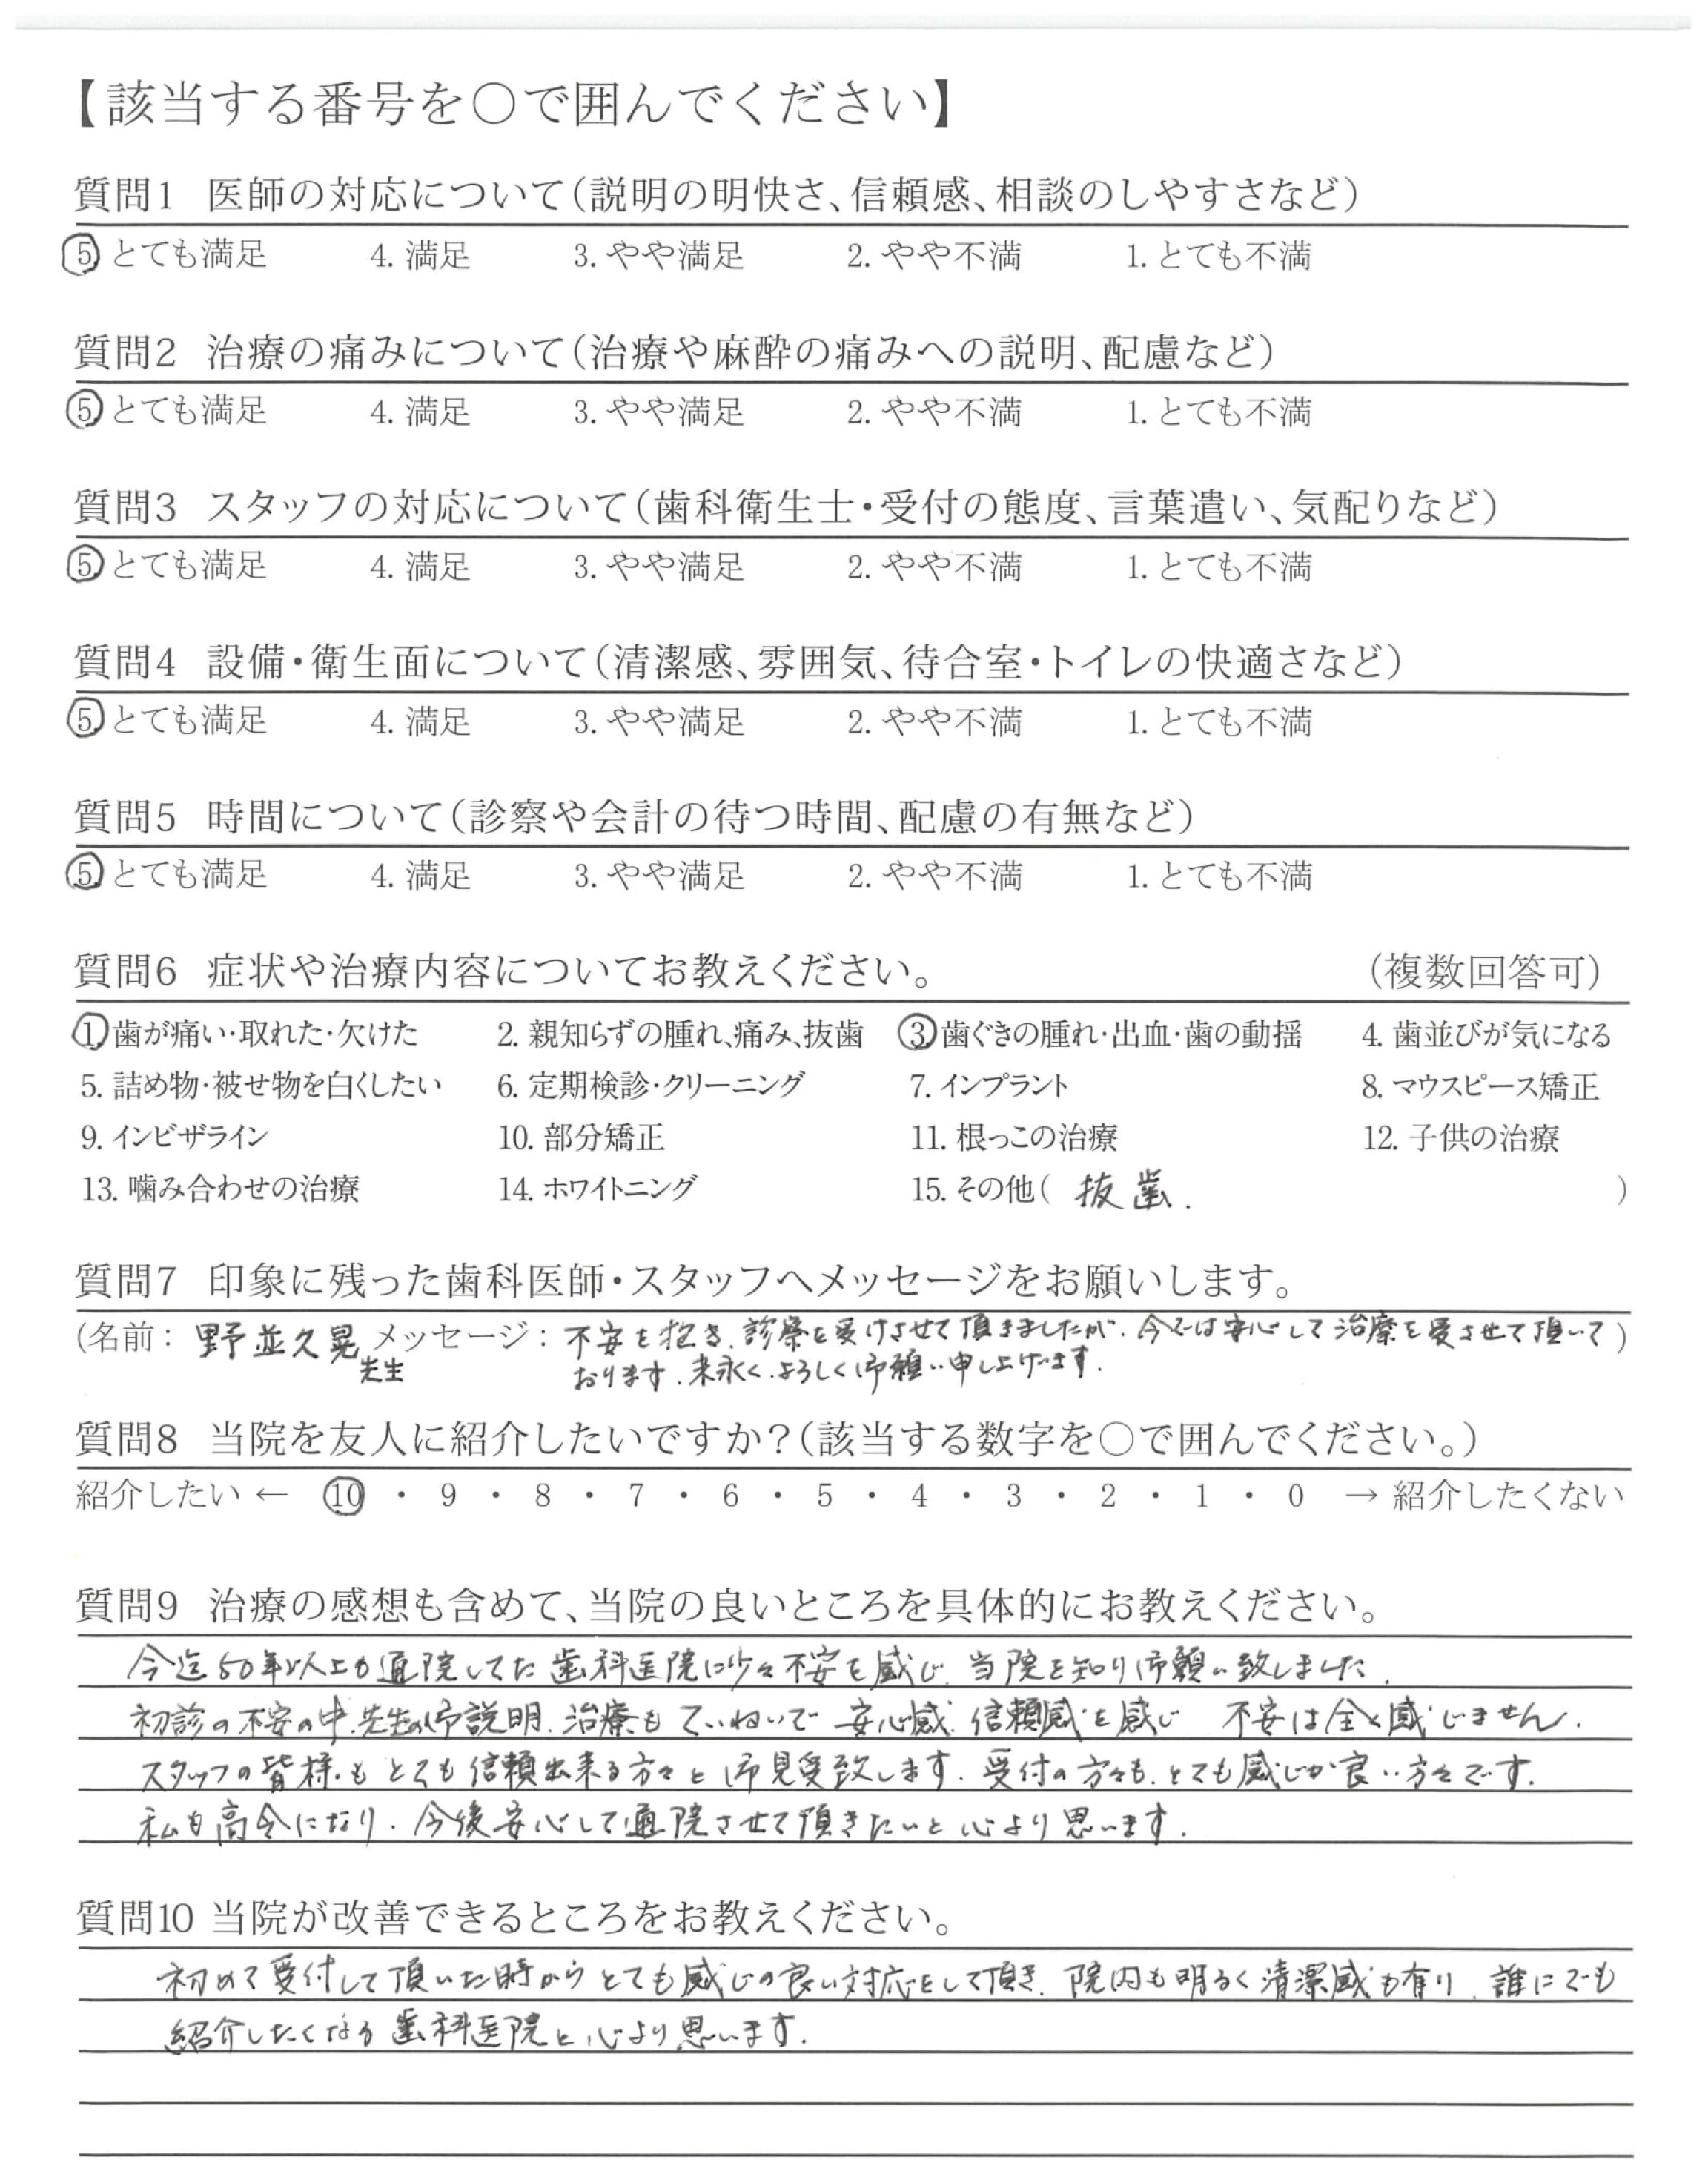 【該当する番号を○で囲んでください】
質問1 医師の対応について(説明の明快さ、信頼感、相談のしやすさなど)
5 とても満足 4. 満足 3. やや満足 2. やや不満 1. とても不満
質問2 治療の痛みについて(治療や麻酔の痛みへの説明、配慮など)
5 とても満足 4. 満足 3. やや満足 2. やや不満 1. とても不満
質問3 スタッフの対応について(歯科衛生士・受付の態度、言葉遣い、気配りなど)
5 とても満足 4. 満足 3. やや満足 2. やや不満 1. とても不満
質問4 設備・衛生面について(清潔感、雰囲気、待合室・トイレの快適さなど)
5 とても満足 4. 満足 3. やや満足 2. やや不満 1. とても不満
質問5 時間について(診察や会計の待つ時間、配慮の有無など)
5 とても満足 4. 満足 3. やや満足 2. やや不満 1. とても不満
質問6 症状や治療内容についてお教えください。 (複数回答可)
1 歯が痛い・取れた・欠けた 2. 親知らずの腫れ、痛み、抜歯 3 歯ぐきの腫れ・出血・歯の動揺 4. 歯並びが気になる
5. 詰め物・被せ物を白くしたい 6. 定期検診・クリーニング 7. インプラント 8. マウスピース矯正
9. インビザライン 10. 部分矯正 11. 根っこの治療 12. 子供の治療
13. 噛み合わせの治療 14. ホワイトニング 15. その他( 抜歯. )
質問7 印象に残った歯科医師・スタッフへメッセージをお願いします。
(名前: 野並久晃 メッセージ: 不安を抱き、診察を受けさせて頂きましたが、今では安心して治療を受させて頂いて)
先生 おります、末永く、よろしく御願い申し上げます.
質問8 当院を友人に紹介したいですか?(該当する数字を○で囲んでください。)
紹介したい ← 10 ・ 9 ・ 8 ・ 7 ・ 6 ・ 5 ・ 4 ・ 3 ・ 2 ・ 1 ・ 0 → 紹介したくない
質問9 治療の感想も含めて、当院の良いところを具体的にお教えください。
今迄50年以上も通院してた歯科医院に少々不安を感じ、当院を知り御願い致しました.
初診の不安の中、先生の御説明、治療もていねいで 安心感、信頼感を感じ 不安は全く感じません.
スタッフの皆様もとても信頼出来る方々と御見受致します. 受付の方々も、とても感じが良い方々です.
私も高令になり、今後安心して通院させて頂きたいと心より思います.
質問10 当院が改善できるところをお教えください。
初めて受付して頂いた時からとても感じの良い対応をして頂き、院内も明るく清潔感も有り、誰にでも
紹介したくなる歯科医院と心より思います.